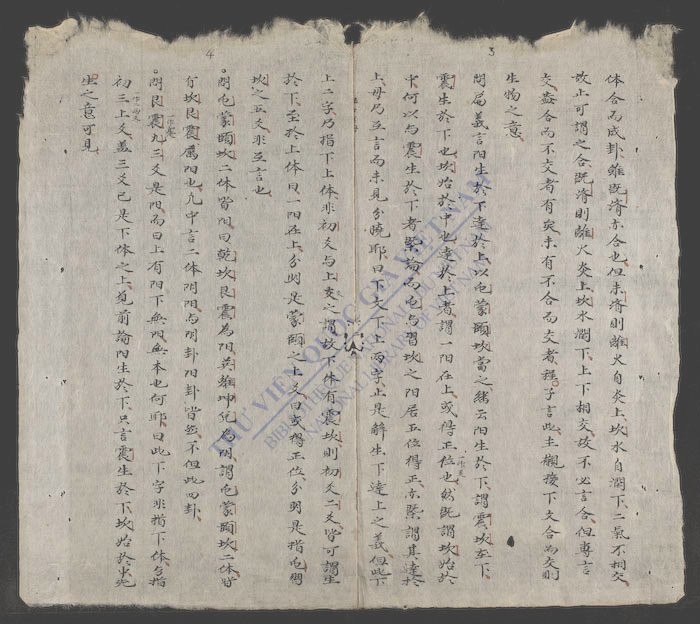 3
体合而成卦雖既濟亦合也但未濟則離火自炎上坎水自潤下二氣不相交
故止可謂之合既濟則離火炎上坎水潤下上下相交故不必言合但專言
交蓋合而不交者有矣未有不合而交者程子言此主網接下文合而交則
生物之意
問篇義言陽生於下達於上以屯蒙頤坎當之繼云陽生於下謂震坎在下
震生於下也坎始於中也達於上者謂一陽在上或得正位也然既謂坎始於
中何以与震生於下者槩論而屯与習坎之陽居五位得正亦槩謂其達於
上毋乃互言而未見分曉耶曰下文下上兩字止是解生下達上之義但此下
4
上二字乃指下上体非初爻与上爻之謂故下体有震坎則初爻二爻皆可謂生
於下至於上体曰一陽在上分明是蒙頤之上爻曰或得正位分明是指屯習
坎之五爻非互言也
問屯蒙頤坎二体皆陽曰乾坎艮震為陽巽離坤兌為陰謂屯蒙頤坎二体皆
有坎艮震属陽也凡中言二体陰陽与陰卦陽卦皆然不但此四卦
問艮震九三爻是陽而曰上有陽下無陽無本也何耶曰此下字非指下体乃指
初三上爻蓋三爻已是下体之上觀前論陽生於下只言震生於下坎始於中
四之意可見
THƯ VIỆN QUỐC GIA VIỆT NAM
BIBLIOTHÈQUE NATIONALE DU VIETNAM
NATIONAL LIBRARY OF VIETNAM